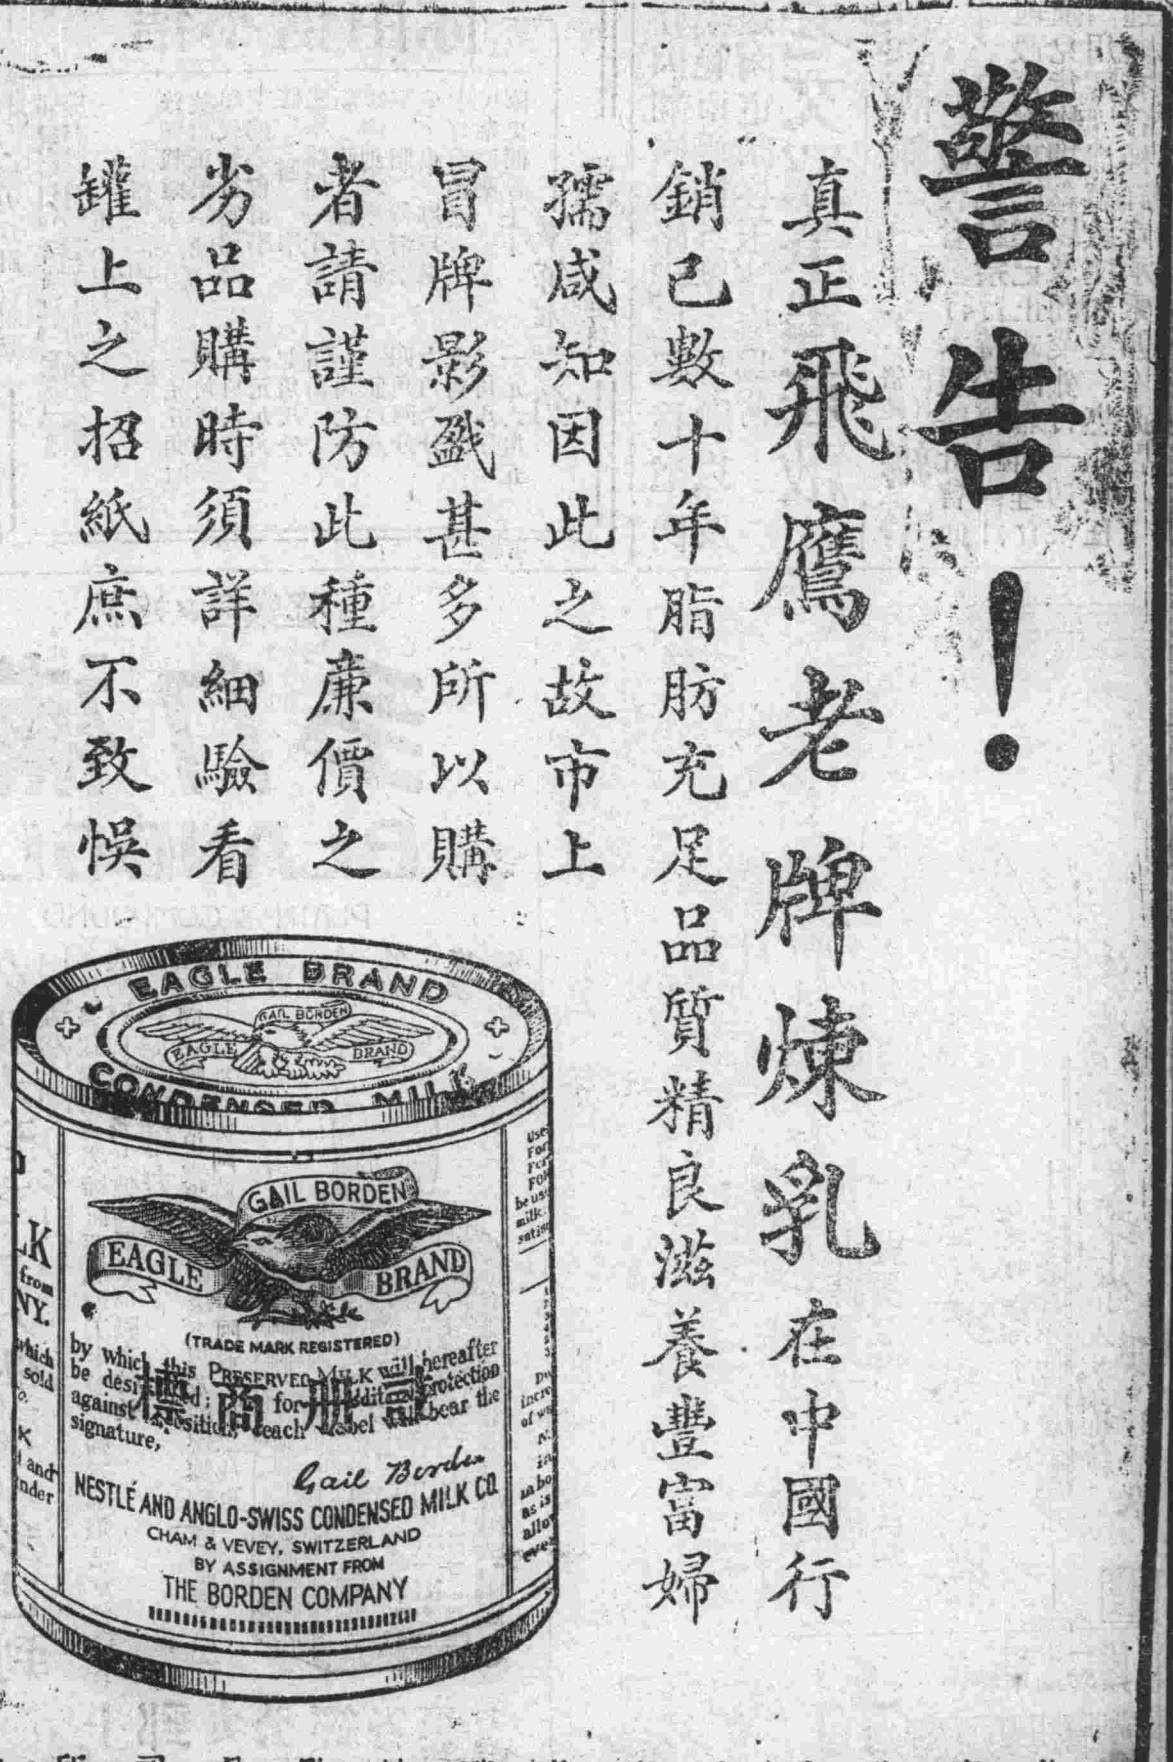 警告！
真正飛鷹老牌煉乳在中國行
銷已數十年脂肪充足品質精良滋養豐富婦
孺咸知因此之故市上
冒牌影戤甚多所以購
者請謹防此種廉價之
劣品購時須詳細驗看
罐上之招紙庶不致悞
EAGLE BRAND
GAIL BORDEN
EAGLE BRAND
CONDENSED MILK
GAIL BORDEN
EAGLE BRAND
(TRADE MARK REGISTERED)
by which this PRESERVED MILK will hereafter
be designated; for additional protection
against imposition each label will bear the
signature,
標商冊註
Gail Borden
NESTLÉ AND ANGLO-SWISS CONDENSED MILK CO.
CHAM & VEVEY, SWITZERLAND
BY ASSIGNMENT FROM
THE BORDEN COMPANY
LK
from
NY.
which
sold
K
and
nder
Use
For
For
be us
milk
satis
incre
of w
in
as is
allo